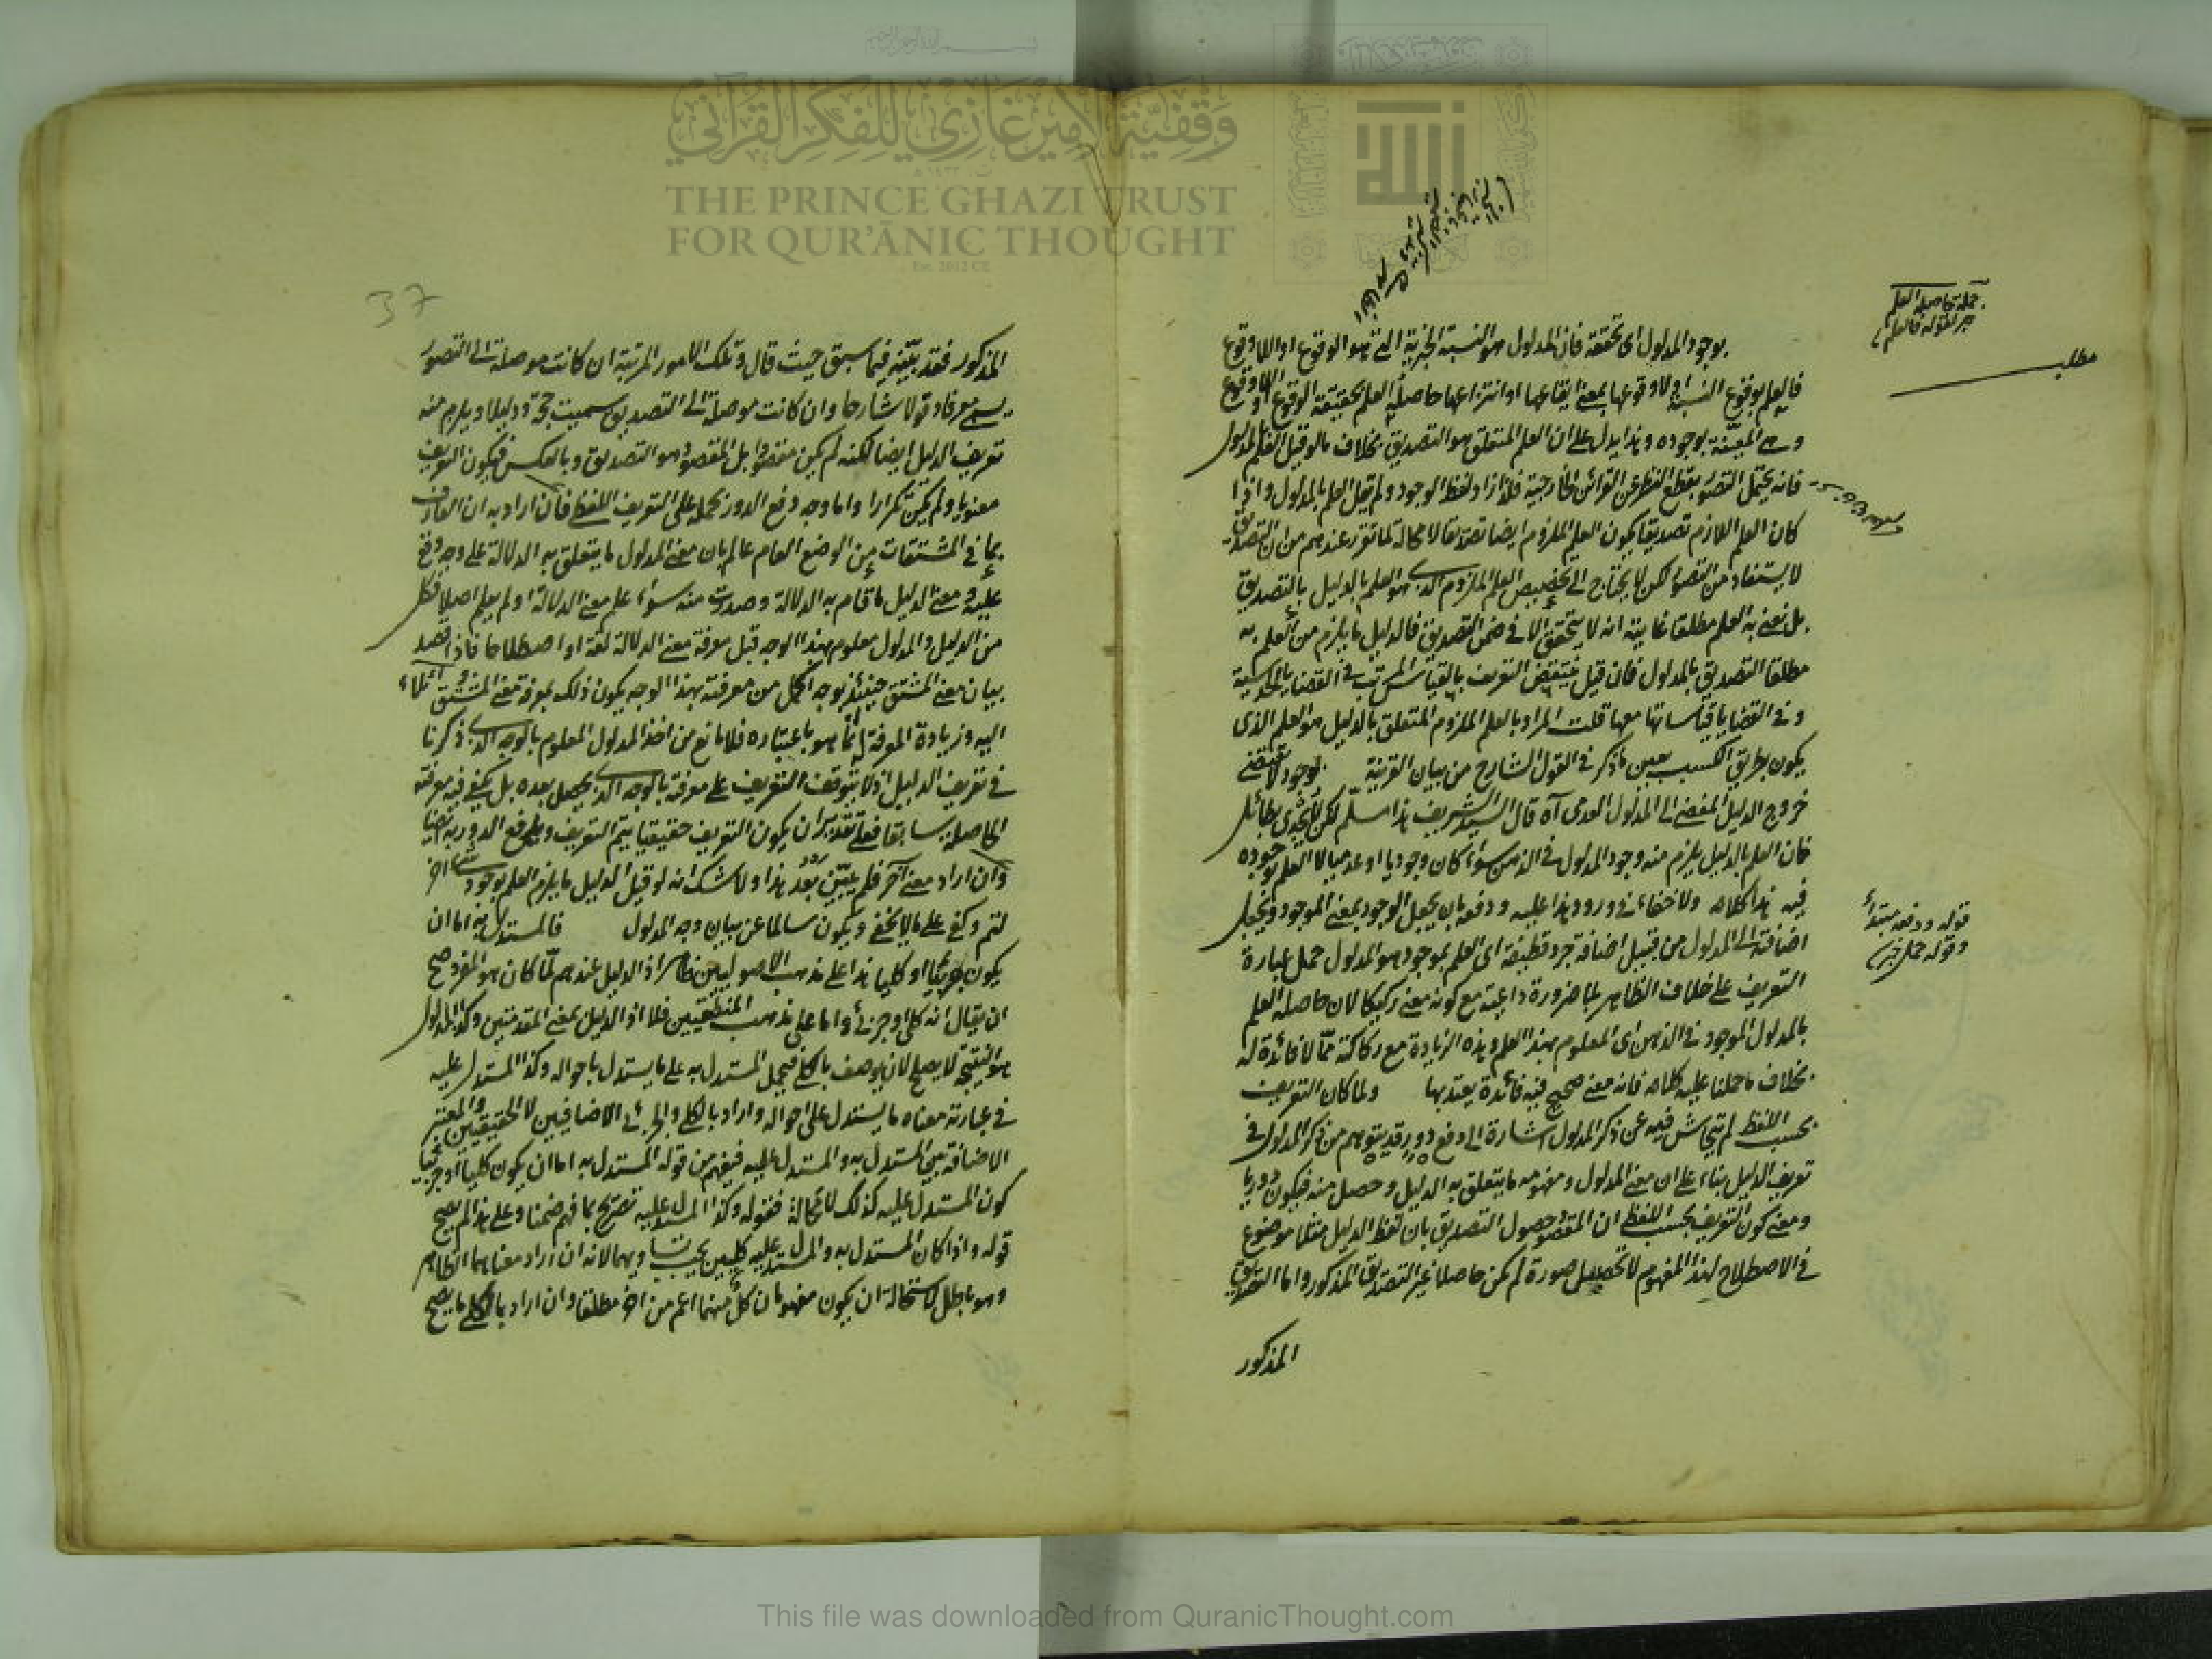 وقفية الأمير غازي للفكر القرآني
THE PRINCE GHAZI TRUST
FOR QUR'ĀNIC THOUGHT
Est. 2012 CE
جملة حاصله العلم
خبر لقوله فالعلم
مطلب
بوجود المدلول اى تحققه فان المدلول هو النسبة الخبرية التى هو الوقوع او اللاوقوع
فالعلم بوقوع النسبة او لا وقوعها بمعنى ايقاعها او انتزاعها حاصله العلم بحقيقة الوقوع او اللاوقوع
وهى المعينة بوجوده وهذا يدل على ان العلم المتعلق هو التصديق بخلاف ما لو قيل العلم بالمدلول
فانه يحتمل التصور بقطع النظر عن القرائن الخارجية فلذا زاد لفظ الوجود ولم يقل العلم بالمدلول واذا
كان العلم اللازم تصديقا يكون العلم الملزوم ايضا تصديقا لا محالة لما تقرر عندهم من ان التصديق
لا يستفاد من التصور لكن لا يحتاج الى تخصيص العلم الملزوم الذى هو العلم بالدليل بالتصديق
بل نعنى به العلم مطلقا غايته انه لا يتحقق الا فى ضمن التصديق فالدليل ما يلزم من العلم به
مطلقا التصديق بالمدلول فان قيل ينتقض التعريف بالقياس المرتب فى القضايا الحدسية
وفى القضايا قياساتها معها قلت المراد بالعلم الملزوم المتعلق بالدليل هو العلم الذى
يكون بطريق الكسب بعين ما ذكر فى القول الشارح من بيان القرينة لوجود لا يقتضى
خروج الدليل المفضى الى المدلول العدمى آه قال السيد الشريف هذا مسلم لكن لا يجدى بطائل
فان العلم بالدليل يلزم منه وجود المدلول فى الذهن سواء كان وجوديا او عدميا لا العلم بوجوده
فيه هذا كلامه ولا خفاء فى ورود هذا عليه ودفعه بان يجعل الوجود بمعنى الموجود ويجعل
اضافته الى المدلول من قبيل اضافة جرد قطيفة اى العلم بموجود هو المدلول حمل عبارة
التعريف على خلاف الظاهر بلا ضرورة داعية مع كونه معنى ركيكا لان حاصله العلم
بالمدلول الموجود فى الذهن اى المعلوم بهذا العلم وهذه الزيادة مع ركاكته مما لا فائدة له
بخلاف ما حملنا عليه كلامه فانه معنى صحيح فيه فائدة يعتد بها ولما كان التعريف
بحسب اللفظ لم يتحاش فيه عن ذكر المدلول اشارة الى دفع دور قد يتوهم من ذكر المدلول فى
تعريف الدليل بناء على ان معنى المدلول ومفهومه ما يتعلق به الدليل وحصل منه فيكون دوريا
ومعنى كون التعريف بحسب اللفظ ان المقصود حصول التصديق بان لفظ الدليل مثلا موضوع
فى الاصطلاح لهذا المفهوم لا تحصيل صورة لم يكن حاصلا غير التصديق المذكور واما التصديق
المذكور
قوله ودفعه مبتدأ
وقوله حمل خبره
37
المذكور فقد بينه فيما سبق حيث قال وتلك الامور المرتبة ان كانت موصلة الى التصور
يسمى معرفا وقولا شارحا وان كانت موصلة الى التصديق سميت حجة ودليلا ويلزم منه
تعريف الدليل ايضا لكنه لم يكن مقصودا بل المقصود هو التصديق وبالعكس فيكون التعريف
معنويا ولم يكن تكرارا واما وجه دفع الدور بحمله على التعريف اللفظى فان اراد به ان العارف
بما فى المشتقات من الوضع العام عالم بان معنى المدلول ما يتعلق به الدلالة على وجه وقع
عليه ومعنى الدليل ما قام به الدلالة وصدرت منه سواء علم معنى الدلالة او لم يعلم اصلا فكل
من الدليل والمدلول معلوم بهذا الوجه قبل معرفة معنى الدلالة لغة او اصطلاحا فاذا قصد
بيان معنى المشتق حينئذ بوجه اكمل من معرفته بهذا الوجه يكون ذلك بمعرفة معنى المشتق
اليه وزيادة المعرفة انما هو باعتباره فلا مانع من اخذ المدلول المعلوم بالوجه الذى ذكرنا
فى تعريف الدليل اذ لا يتوقف التعريف على معرفته بالوجه الذى يحصل بعده بل يكفى فيه معرفته
الحاصلة سابقا فعلى تقدير ان يكون التعريف حقيقيا يتم التعريف ويلغى دفع الدور به ايضا
وان اراد معنى آخر فلم يتبين بعد هذا ولا شك انه لو قيل الدليل ما يلزم العلم بوجود شئ آخر
لتم وكفى على ما لا يخفى ويكون سالما عن بيان وجه المدلول فالمستدل به اما ان
يكون جزئيا او كليا هذا على مذهب الاصوليين ظاهر اذ الدليل عندهم لما كان هو المفرد صح
ان يقال انه كلى او جزئى واما على مذهب المنطقيين فلا اذ الدليل بمعنى المقدمتين وكذا المدلول
هو النتيجة لا يصلح لان يوصف بالكلى فيحمل المستدل به على ما يستدل باحواله وكذا المستدل عليه
فى عبارته معناه ما يستدل على احواله واراد بالكلى والجزئى الاضافيين لا الحقيقيين والمعتبر
الاضافة بين المستدل به والمستدل عليه فيفهم من قوله المستدل به اما ان يكون كليا او جزئيا
كون المستدل عليه كذلك لا محالة فقوله وكذا المستدل عليه تصريح بما فهم ضمنا وعلى هذا لم يصح
قوله واذا كان المستدل به والمستدل عليه كليين يجب تساويهما لانه ان اراد معناهما الظاهر
وهو باطل لاستحالة ان يكون مفهومان كل منهما اعم من آخر مطلقا وان اراد بالكلى ما يصح
This file was downloaded from QuranicThought.com